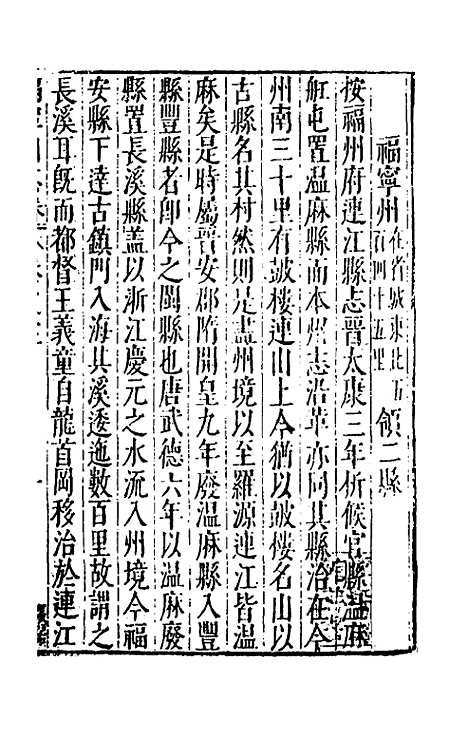 福寧州在省城東北五百四十五里領二縣
按福州府連江縣志晉太康三年析候官縣温麻
舡屯置温麻縣而本州志沿革亦同其縣治在今
州南三十里有鼓樓連山上今猶以鼓樓名山以
古縣名其村然則是盡州境以至羅源連江皆温
麻矣是時屬晉安郡隋開皇九年廢温麻縣入豐
縣豐縣者即今之閩縣也唐武德六年以温麻廢
縣置長溪縣盖以浙江慶元之水流入州境今福
安縣下達古鎮門入海其溪逶迤數百里故謂之
長溪耳既而都督王義童自龍首岡移治於連江